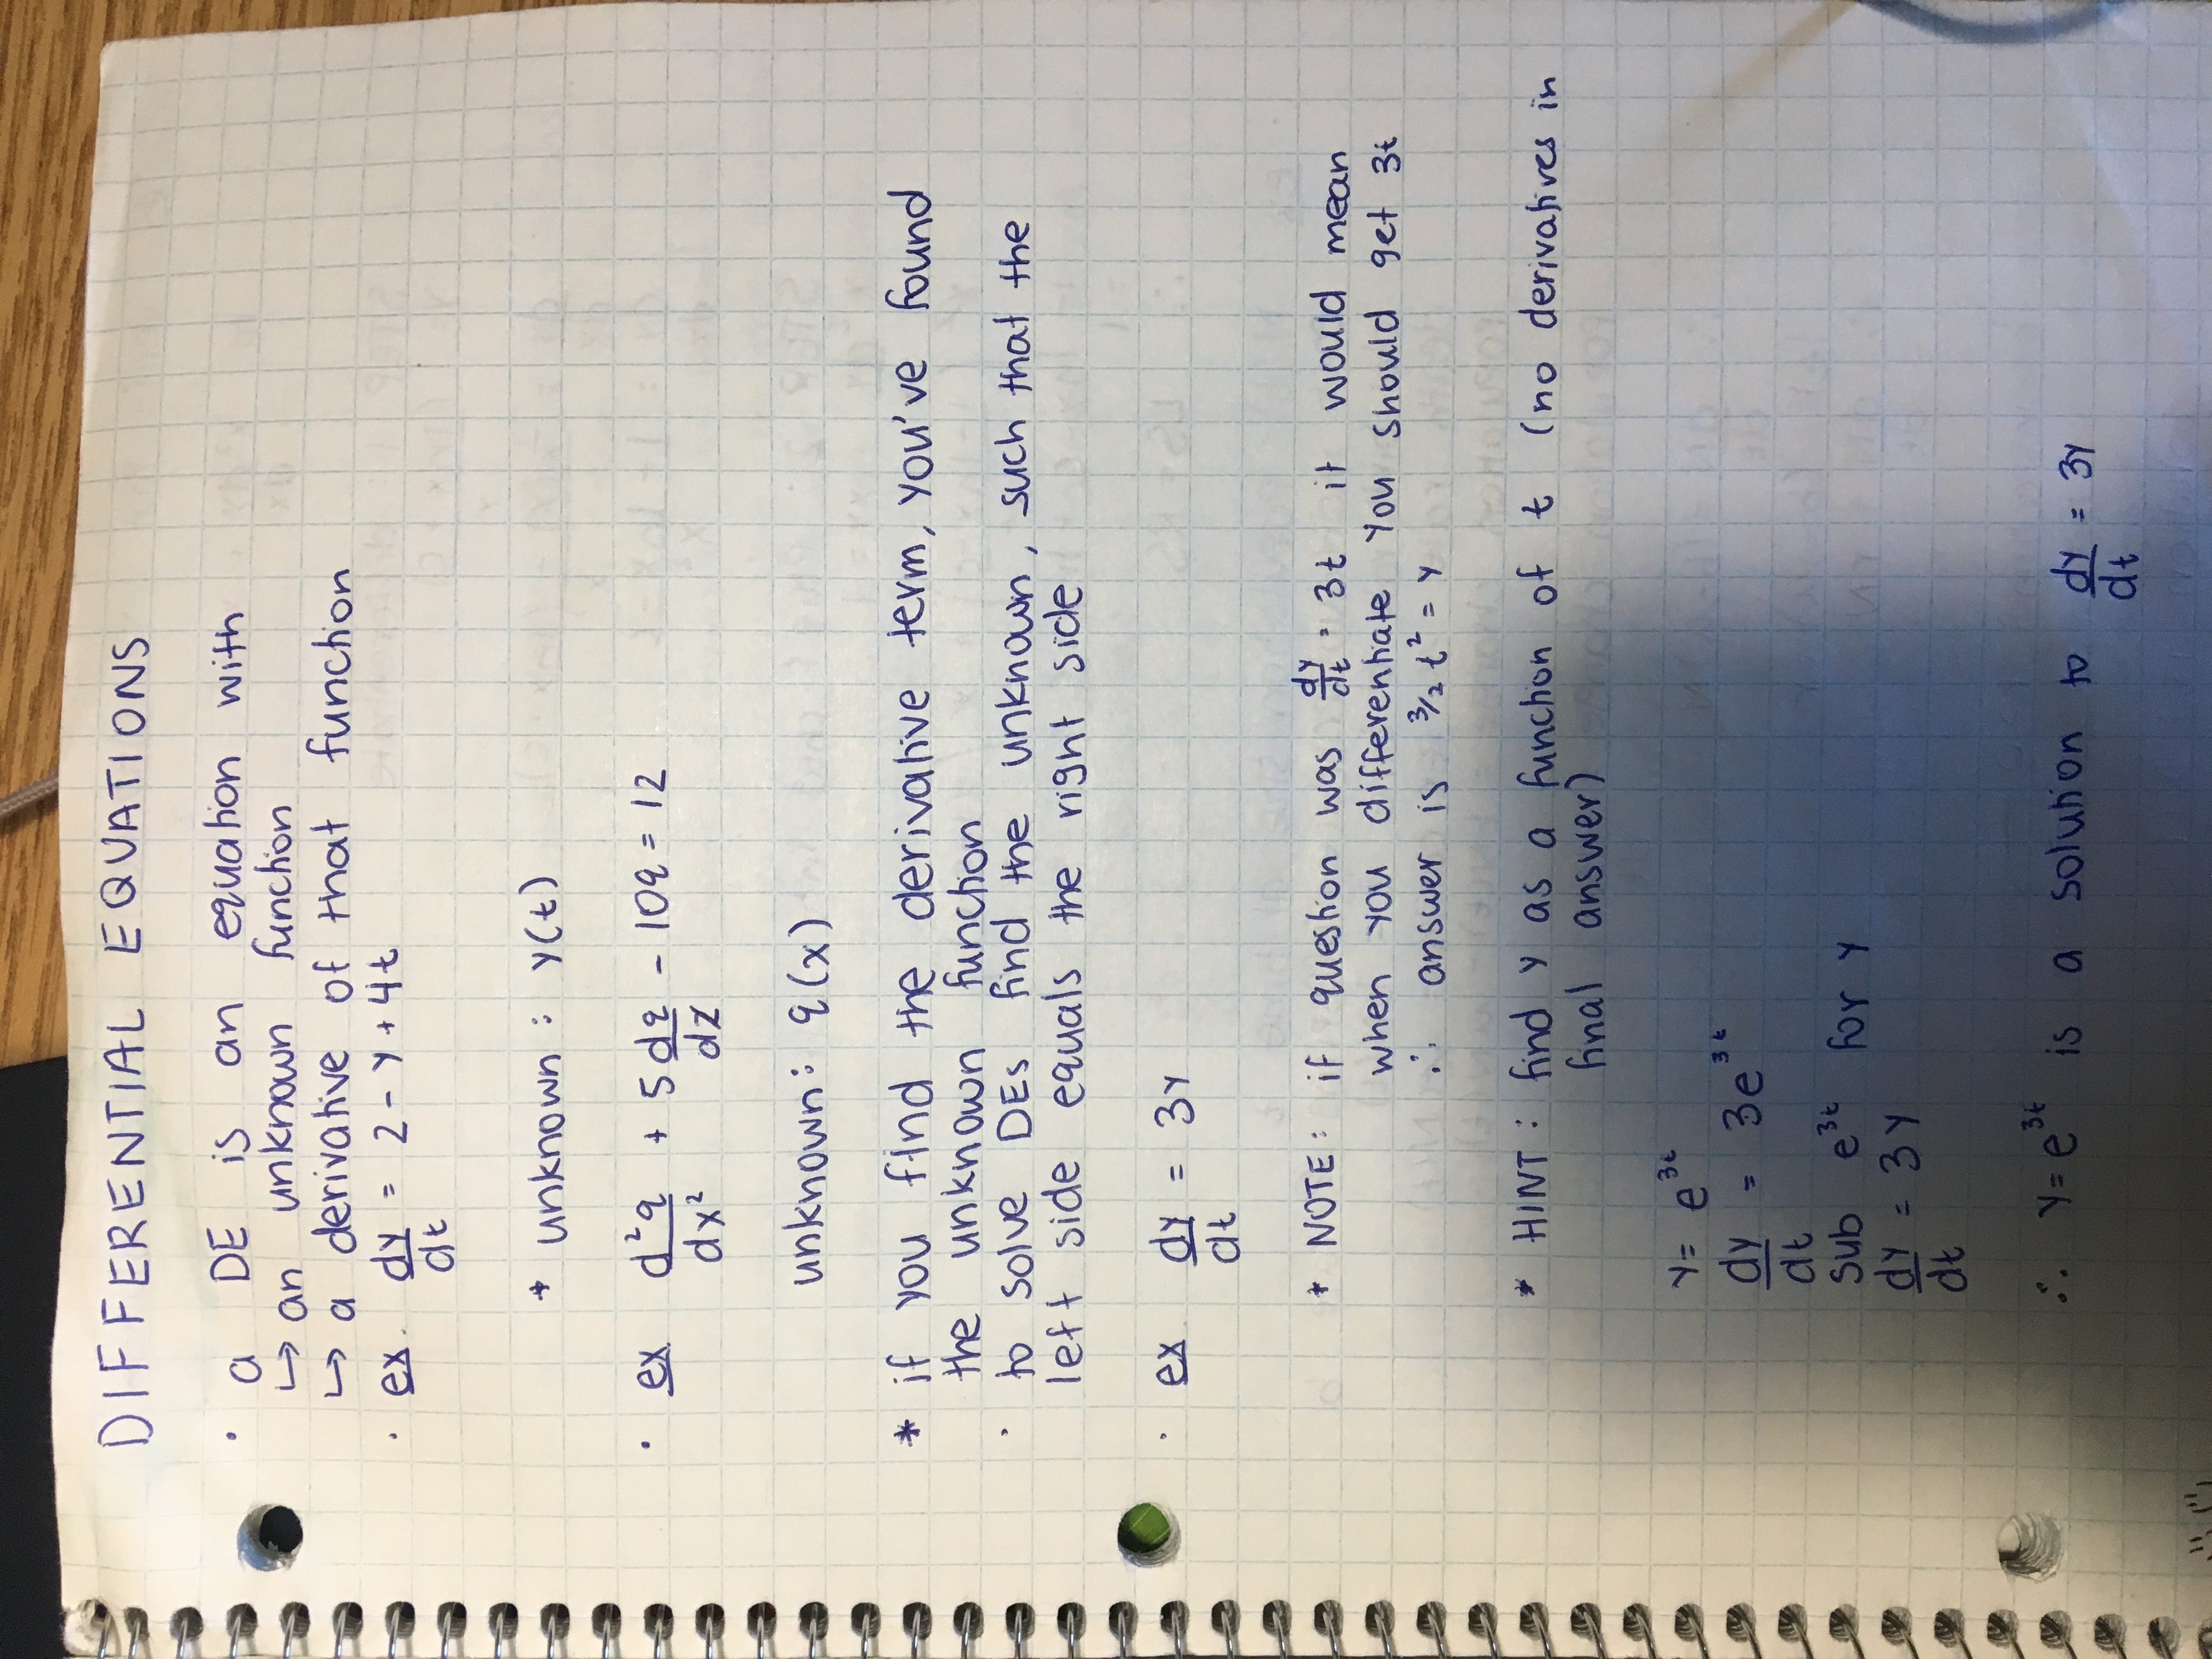 DIFFERENTIAL EQUATIONS
· a DE is an equation with
↳ an unknown function
↳ a derivative of that function
· ex. dy/dt = 2 - y + 4t
* unknown : y(t)
· ex d²q/dx² + 5 dq/dx - 10q = 12
unknown : q(x)
* if you find the derivative term, you've found
the unknown function
· to solve DEs find the unknown, such that the
left side equals the right side
· ex. dy/dt = 3y
* NOTE: if question was dy/dt = 3t it would mean
when you differentiate you should get 3t
∴ answer is 3/2 t² = y
* HINT : find y as a function of t (no derivatives in
final answer)
y = e^3t
dy/dt = 3e^3t
sub e^3t for y
dy/dt = 3y
∴ y = e^3t is a solution to dy/dt = 3y